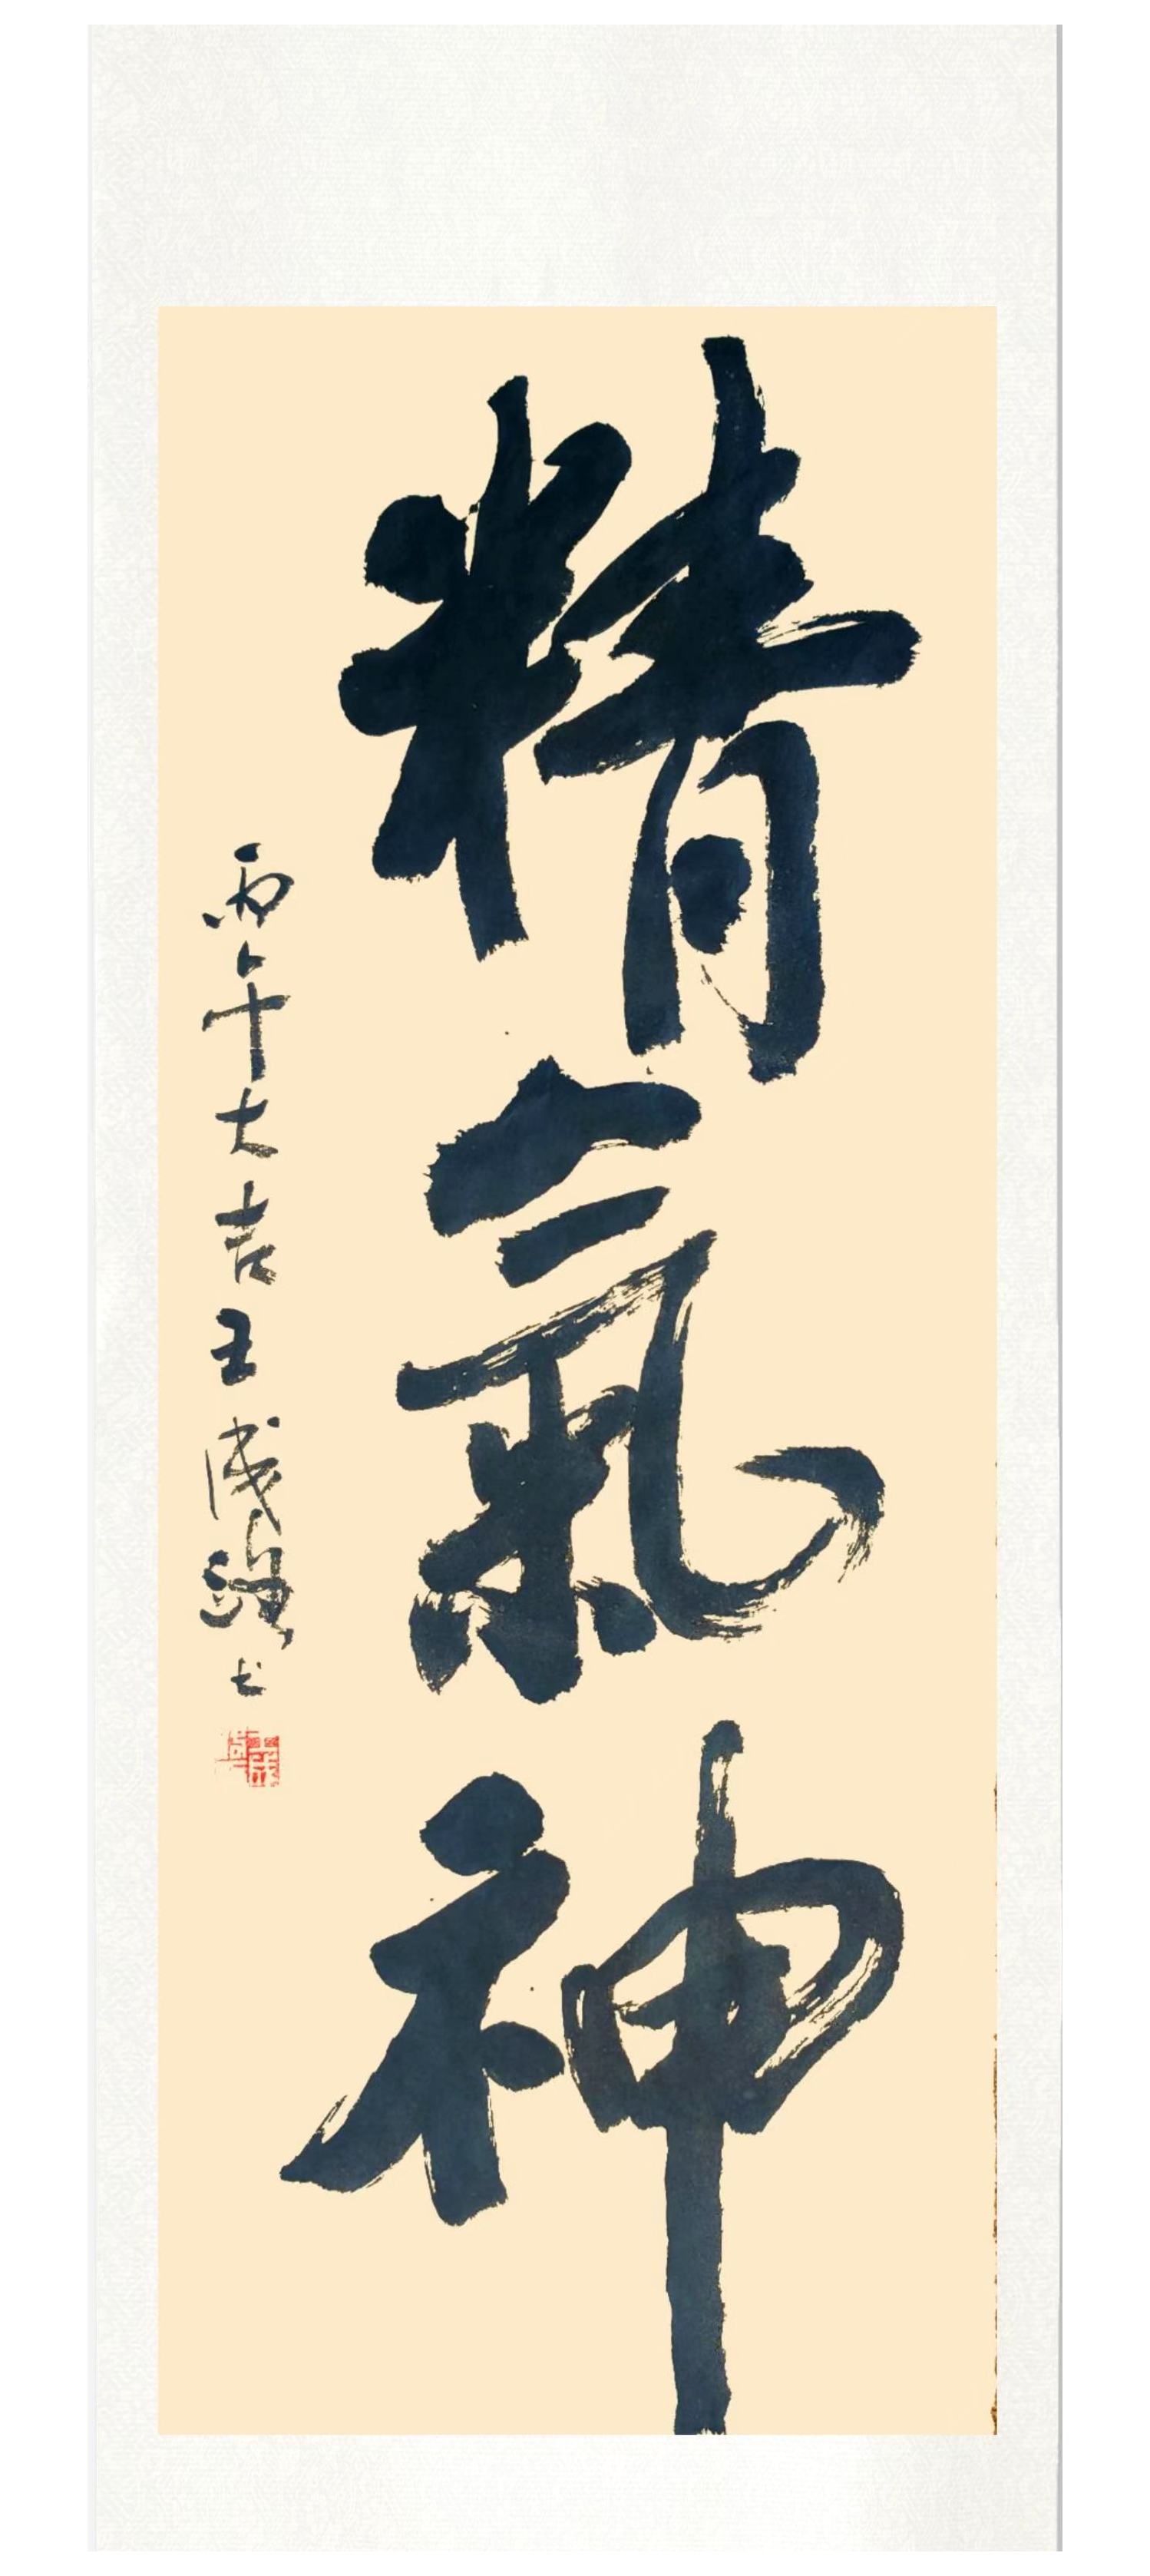 精氣神
丙午大吉 王成 书